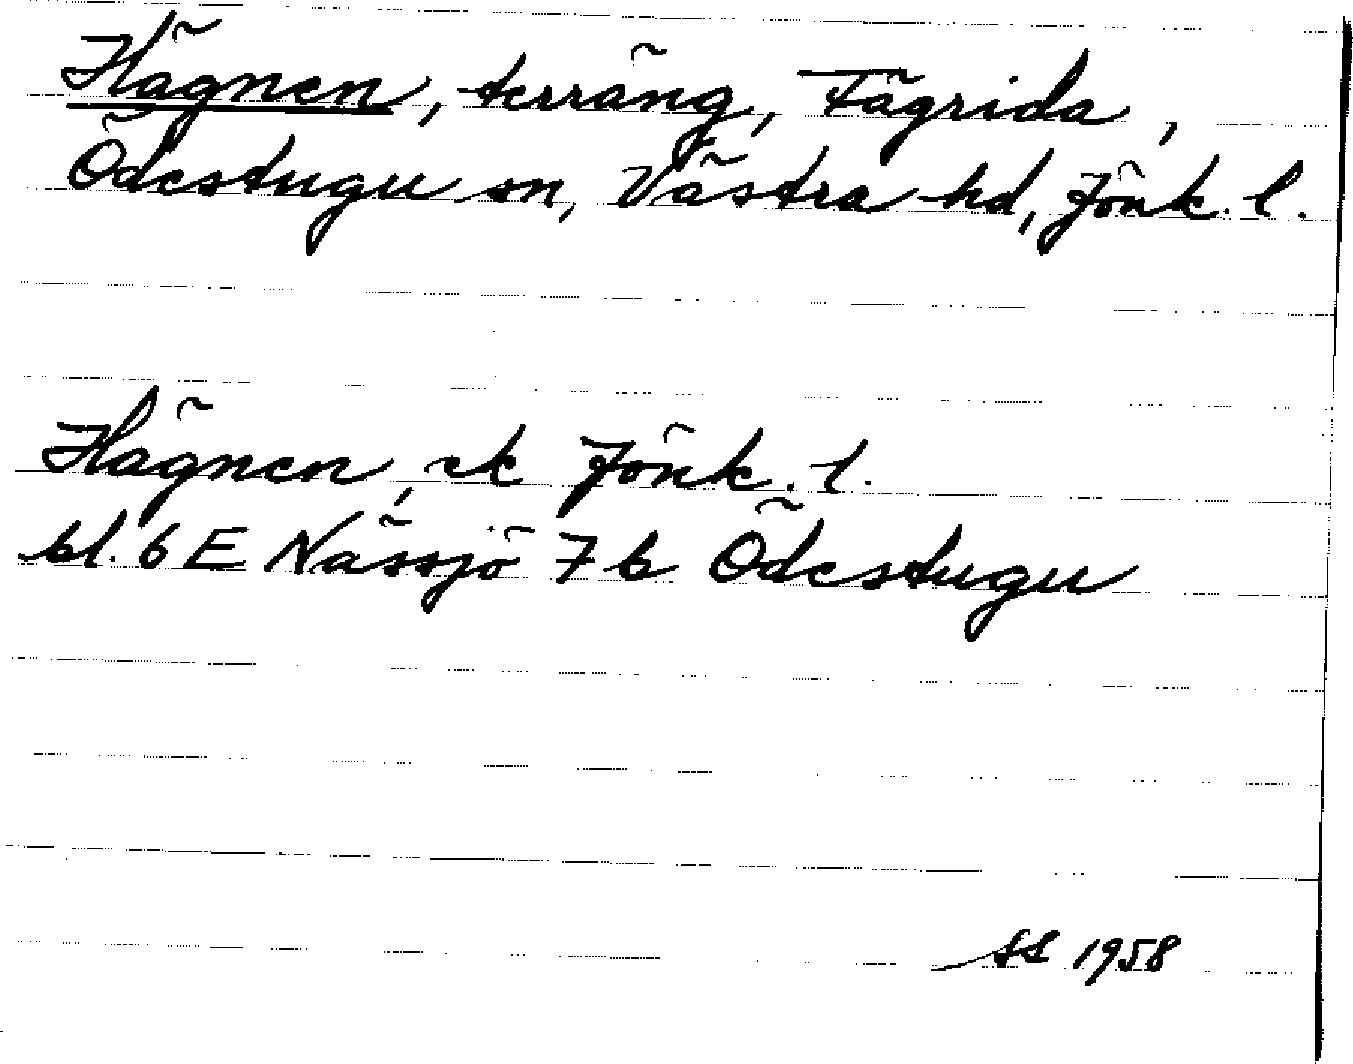 Hägnen, terräng, Fägrida,
Ödestugu sn, Västra hd, Jönk. l.
Hägnen, ek Jönk. l.
bl. 6 E Nässjö 7 b Ödestugu
SS 1958